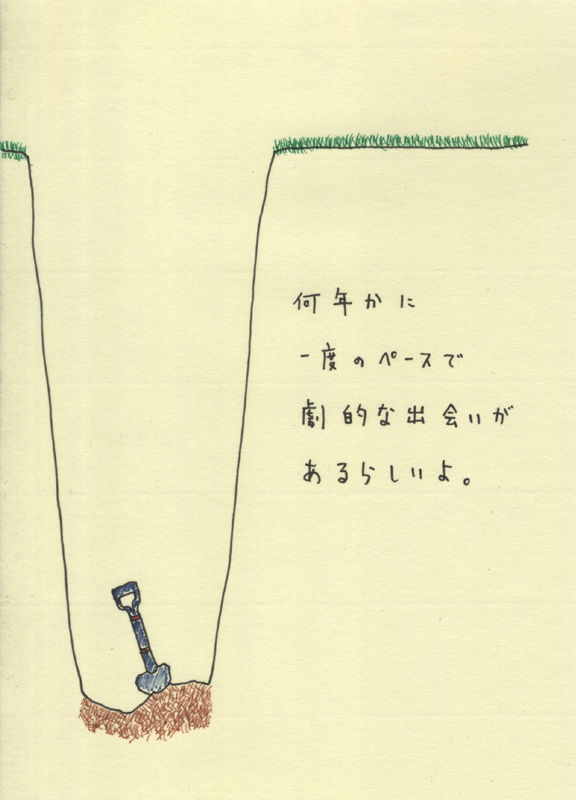 何年かに
一度のペースで
劇的な出会いが
あるらしいよ。